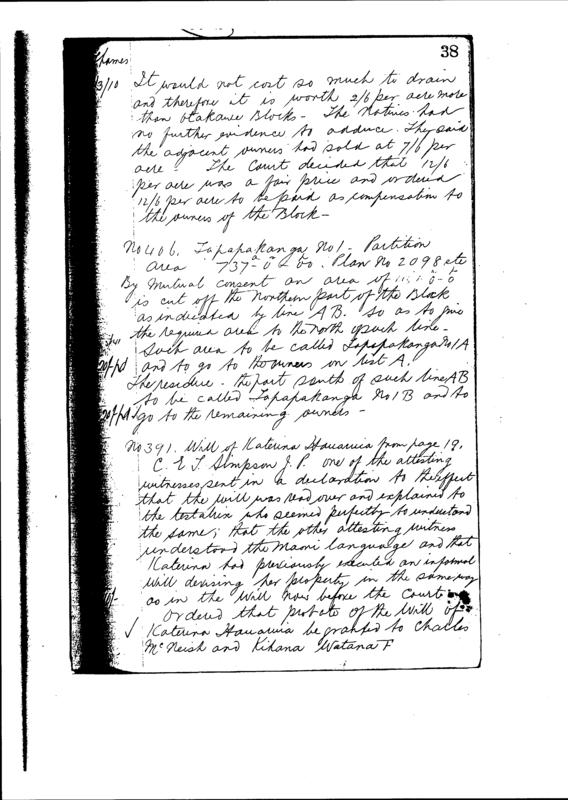 38
Thames
3/10
It would not cost so much to drain
and therefore it is worth 2/6 per acre more
than Otakawe Blocks - The Natives had
no further evidence to adduce. They said
the adjacent owners had sold at 7/6 per
acre - The Court decided that 12/6
per acre was a fair price and ordered
12/6 per acre to be paid as compensation to
the owners of the Block -
No 406. Tapapakanga No 1 - Partition
Area 737a- 0r - 00p. Plan No 2098 etc
By Mutual consent an area of
is cut off the Northern part of the Block
as indicated by line AB. So as to give
the required area to the North of such line.
Such area to be called Tapapakanga No 1A
and to go to the owners on list A.
The residue - the part south of such line AB
to be called Tapapakanga No 1B and to
go to the remaining owners -
No 391. Will of Katerina Hauauia from page 19.
C. E. T. Simpson J. P. one of the attesting
witnesses, sent in a declaration to the effect
that the will was read over and explained to
the testatrix who seemed perfectly to understand
the same; that the other attesting witness
understood the Maori language and that
Katerina had previously executed an informal
Will devising her property in the same way
as in the Will now before the Court
Ordered that probate of the Will of
Katerina Hauauia be granted to Charles
McNeish and Kihana Watana F